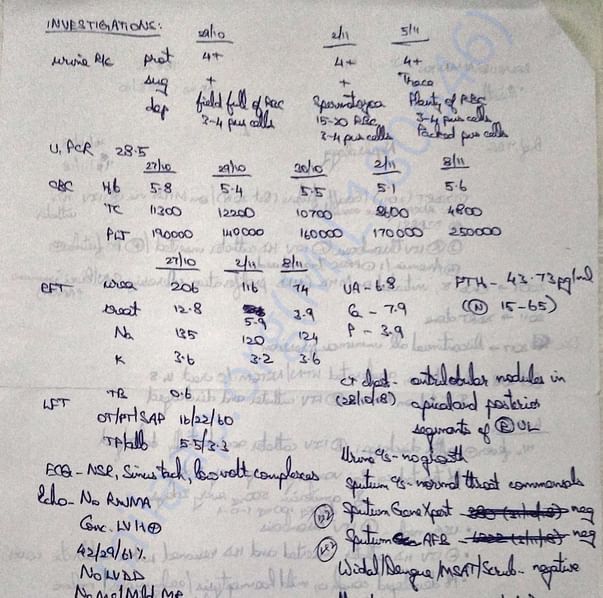 INVESTIGATIONS:
29/10 2/11 5/11
urine R/c prot 4+ 4+ 4+
sug + + Trace
dep field full of RBC Spermatozoa Plenty of RBC
3-4 pus cells 15-20 RBC, 3-4 pus cells
3-4 pus cells Packed pus cells
U. PCR 28.5
27/10 29/10 30/10 2/11 8/11
CBC Hb 5.8 5.4 5.5 5.1 5.6
TC 11300 12200 10700 8600 4800
PLT 190000 140000 160000 170000 250000
27/10 2/11 8/11
RFT urea 206 116 74 UA - 6.8 PTH - 43.73 pg/ml
creat 12.8 5.9 3.9 Ca - 7.9 (N) 15-65)
Na 135 120 124 P - 3.9
K 3.6 3.2 3.6
LFT TB 0.6
OT/PT/SAP 16/22/60
TP/alb 5.5/3.3
CT chest - centrilobular nodules in
(28/10/18) apical and posterior
segments of (R) UL
Urine c/s - no growth
ECG - NSR, Sinus tach, low volt complexes
Sputum c/s - normal throat commensals
Echo - No RWMA
Sputum GeneXpert neg
Conc. LVH +
Sputum AFB neg
42/29/61%
Widal/Dengue/MSAT/Scrub - negative
No LVDD